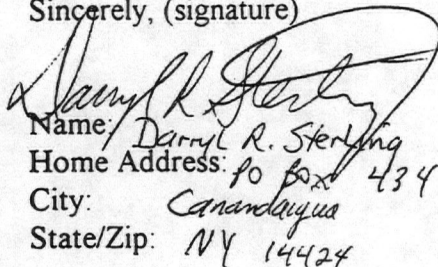 Sincerely, (signature)
Darryl R. Sterling
Name: Darryl R. Sterling
Home Address: PO Box 434
City: Canandaigua
State/Zip: NY 14424